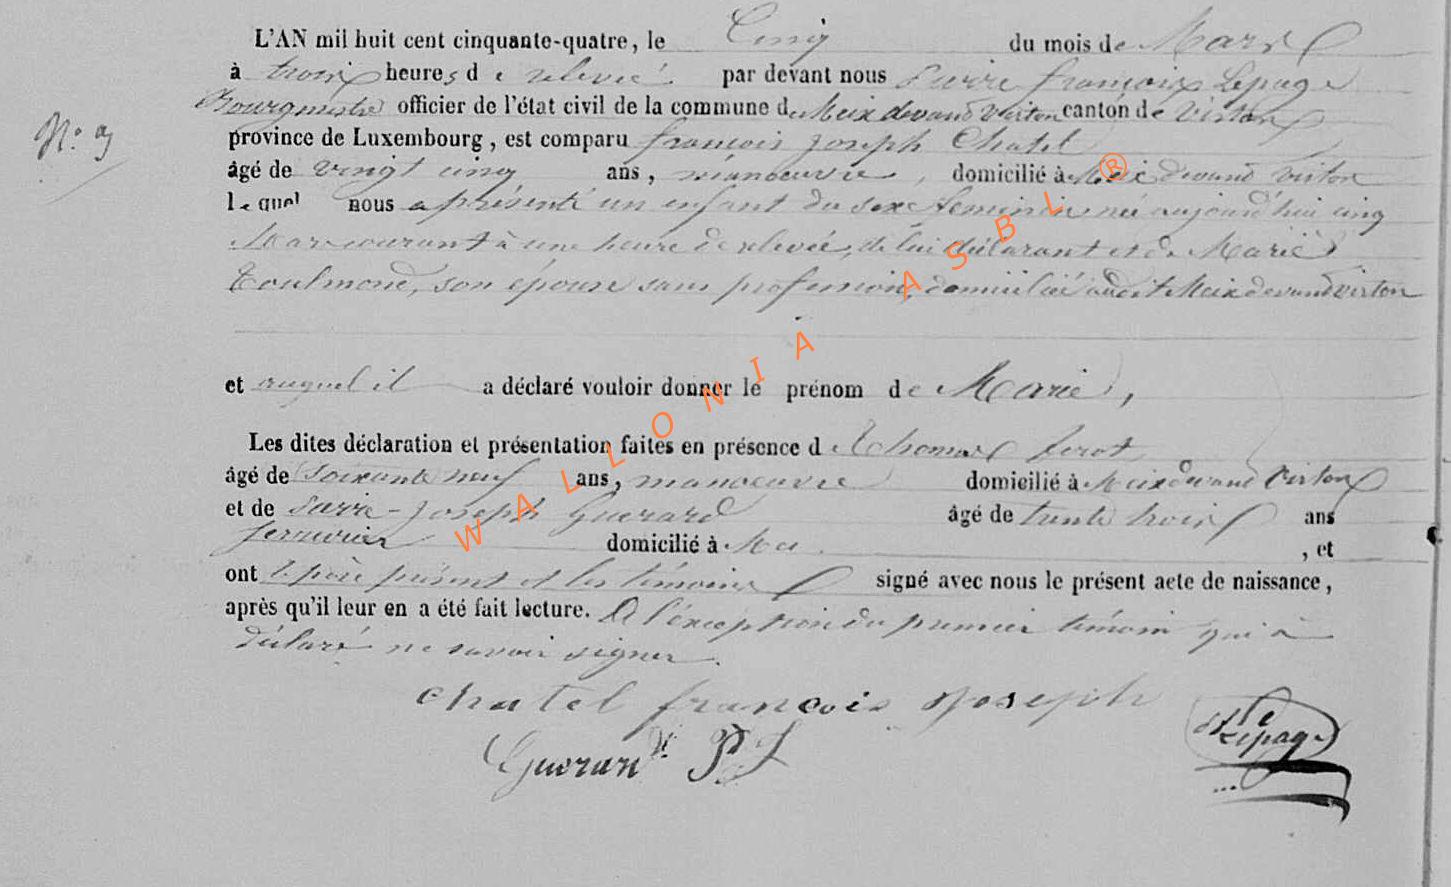 L'AN mil huit cent cinquante-quatre, le Cinq du mois de Mars
à trois heures de relevée par devant nous Pierre françois Lepage
Bourgmestre officier de l'état civil de la commune de Meix devand Virton canton de Virton
N.°
province de Luxembourg, est comparu françois Joseph Chatel
âgé de vingt cinq ans, manoeuvre, domicilié à Meix devand Virton
lequel nous a présenté un enfant du sexe feminin née aujourd'hui cinq
Mars courant à une heure de relevée, de lui déclarant et de Marie
Toulmond, son épouse sans profession, domiciliée audit Meix devand Virton
et auquel il a déclaré vouloir donner le prénom de Marie,
Les dites déclaration et présentation faites en présence d Thomas
âgé de soixante neuf ans, manoeuvre domicilié à Meix devand Virton
et de Pierre-Joseph Guerard âgé de trente trois ans
serrurier domicilié à , et
ont le père présent et les témoins signé avec nous le présent acte de naissance,
après qu'il leur en a été fait lecture. A l'exception du premier témoin qui a
déclaré ne savoir signer.
chatel françois joseph
Guerard P J
Lepage
WALLONIA ASBL ®